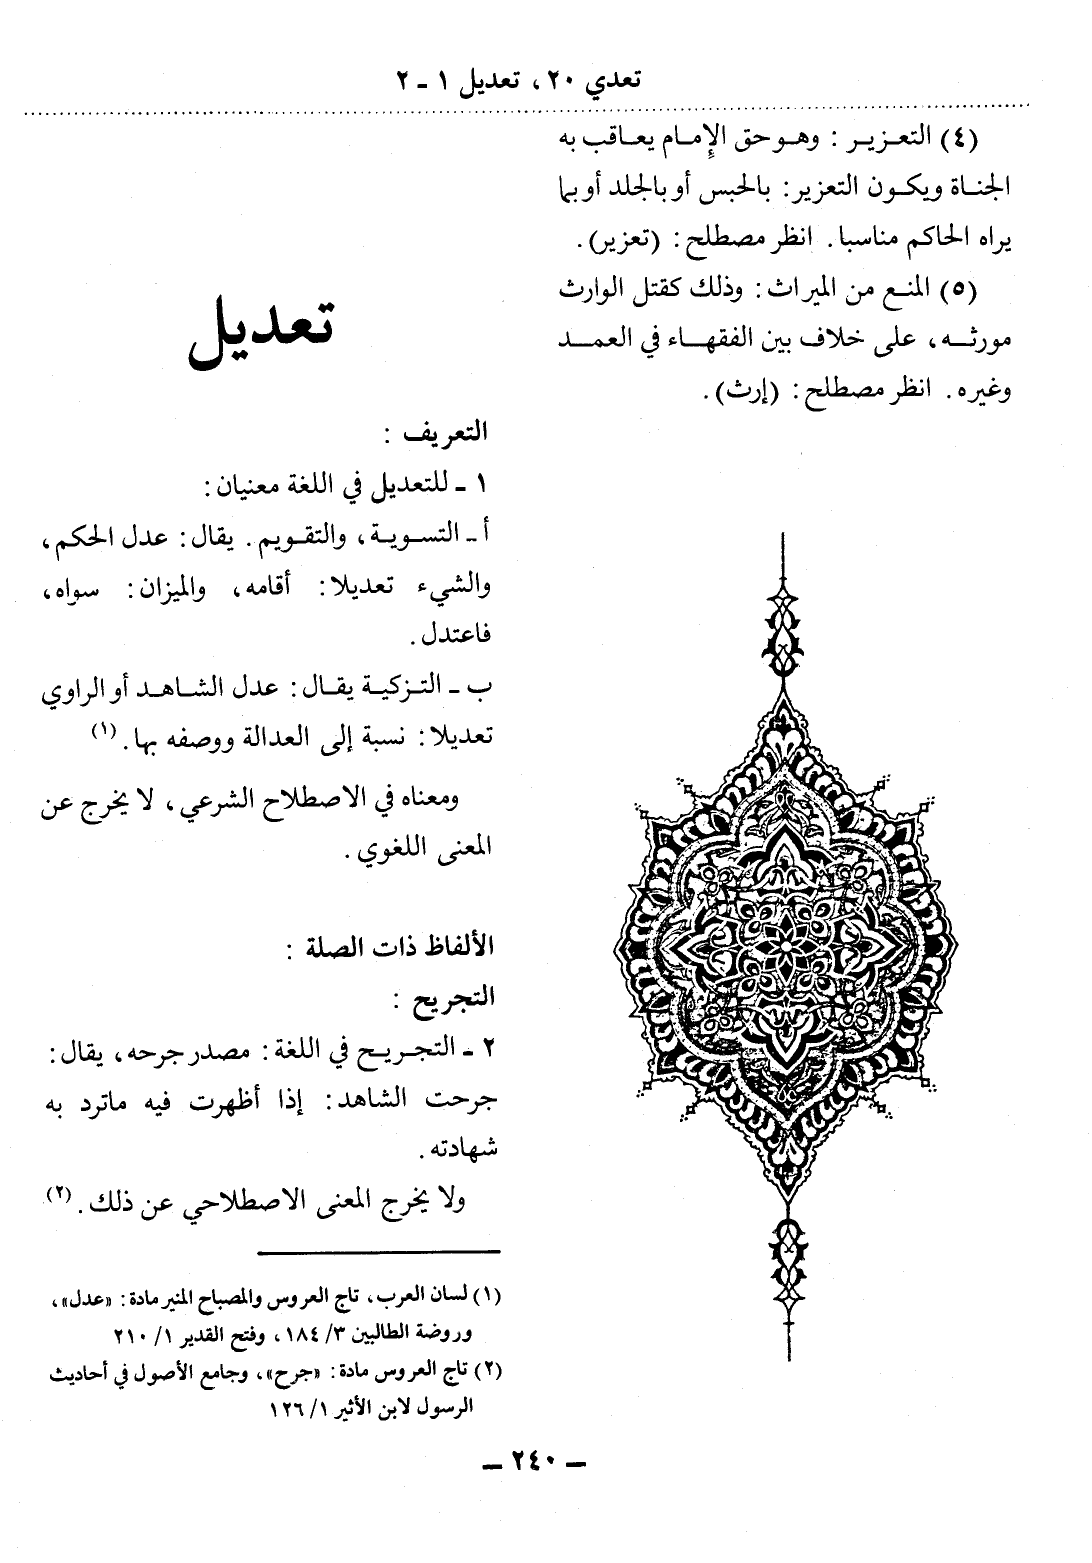 تعدي ٢٠ ، تعديل ١ ـ ٢
(٤) التعـزيـر : وهـو حق الإمـام يعـاقب به
الجنـاة ويكـون التعزير : بالحبس أو بالجلد أو بما
يراه الحاكم مناسبا . انظر مصطلح : (تعزير) .
(٥) المنـع من الميراث : وذلك كقتل الوارث
مورثـه ، على خلاف بين الفقهـاء في العمـد
وغيره . انظر مصطلح : (إرث) .
تعديل
التعريف :
١ ـ للتعديل في اللغة معنيان :
أ ـ التسـويـة ، والتقـويم . يقال : عدل الحكم ،
والشيء تعديلا : أقامه ، والميزان : سواه ،
فاعتدل .
ب ـ التـزكيـة يقـال : عدل الشـاهـد أو الراوي
تعديلا : نسبة إلى العدالة ووصفه بها . (١)
ومعناه في الاصطلاح الشرعي ، لا يخرج عن
المعنى اللغوي .
الألفاظ ذات الصلة :
التجريح :
٢ ـ التجـريـح في اللغة : مصدر جرحه ، يقال :
جرحت الشاهد : إذا أظهرت فيه ماترد به
شهادته .
ولا يخرج المعنى الاصطلاحي عن ذلك . (٢)
(١) لسان العرب ، تاج العروس والمصباح المنير مادة : «عدل» ،
وروضة الطالبين ٣/ ١٨٤ ، وفتح القدير ١/ ٢١٠
(٢) تاج العروس مادة : «جرح» ، وجامع الأصول في أحاديث
الرسول لابن الأثير ١/ ١٢٦
ـ ٢٤٠ ـ